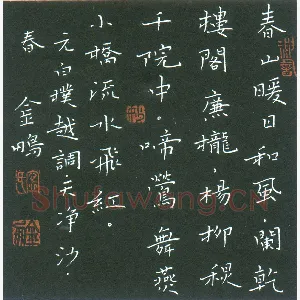 春山暖日和風，闌乾
樓閣廉櫳，楊柳
千院中。啼鶯舞燕
小橋流水飛紅。
元白樸越調天淨沙·
春
金
Shufawang.cn